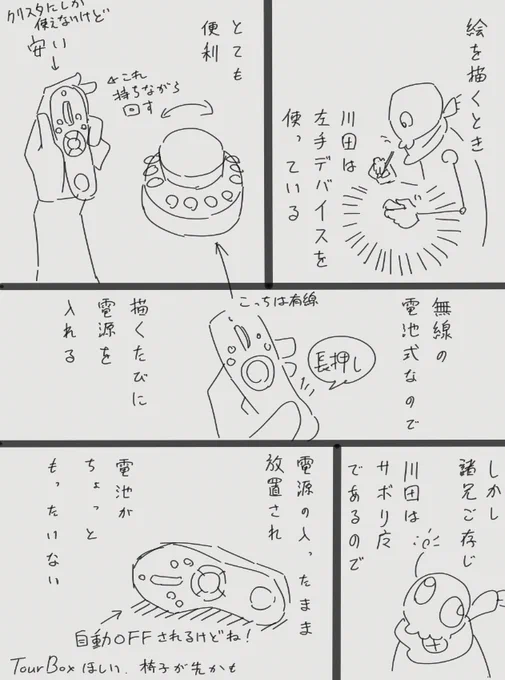 絵を描くとき
川田は
左手デバイスを
使っている
とても
便利
クリスタにしか
使えないけど
安い
これ
持ちながら
回す
無線の
電池式なので
長押し
こっちは有線
描くたびに
電源を
入れる
しかし
諸兄ご存じ
川田は
サボり症
であるので
電源の入ったまま
放置され
電池が
ちょっと
もったいない
自動OFFされるけどね!
TourBoxほしい、椅子が先かも